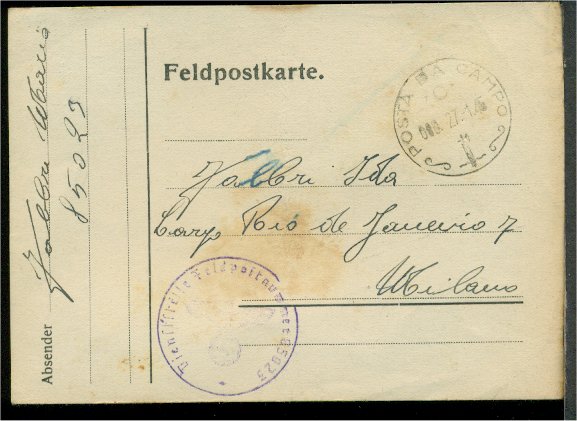 Feldpostkarte.
POSTA DA CAMPO
Fabbri Ida
Corso Rio de Janeiro 7
Milano
Dienststelle Feldpostnummer 85023
Absender
Fabbri
85023